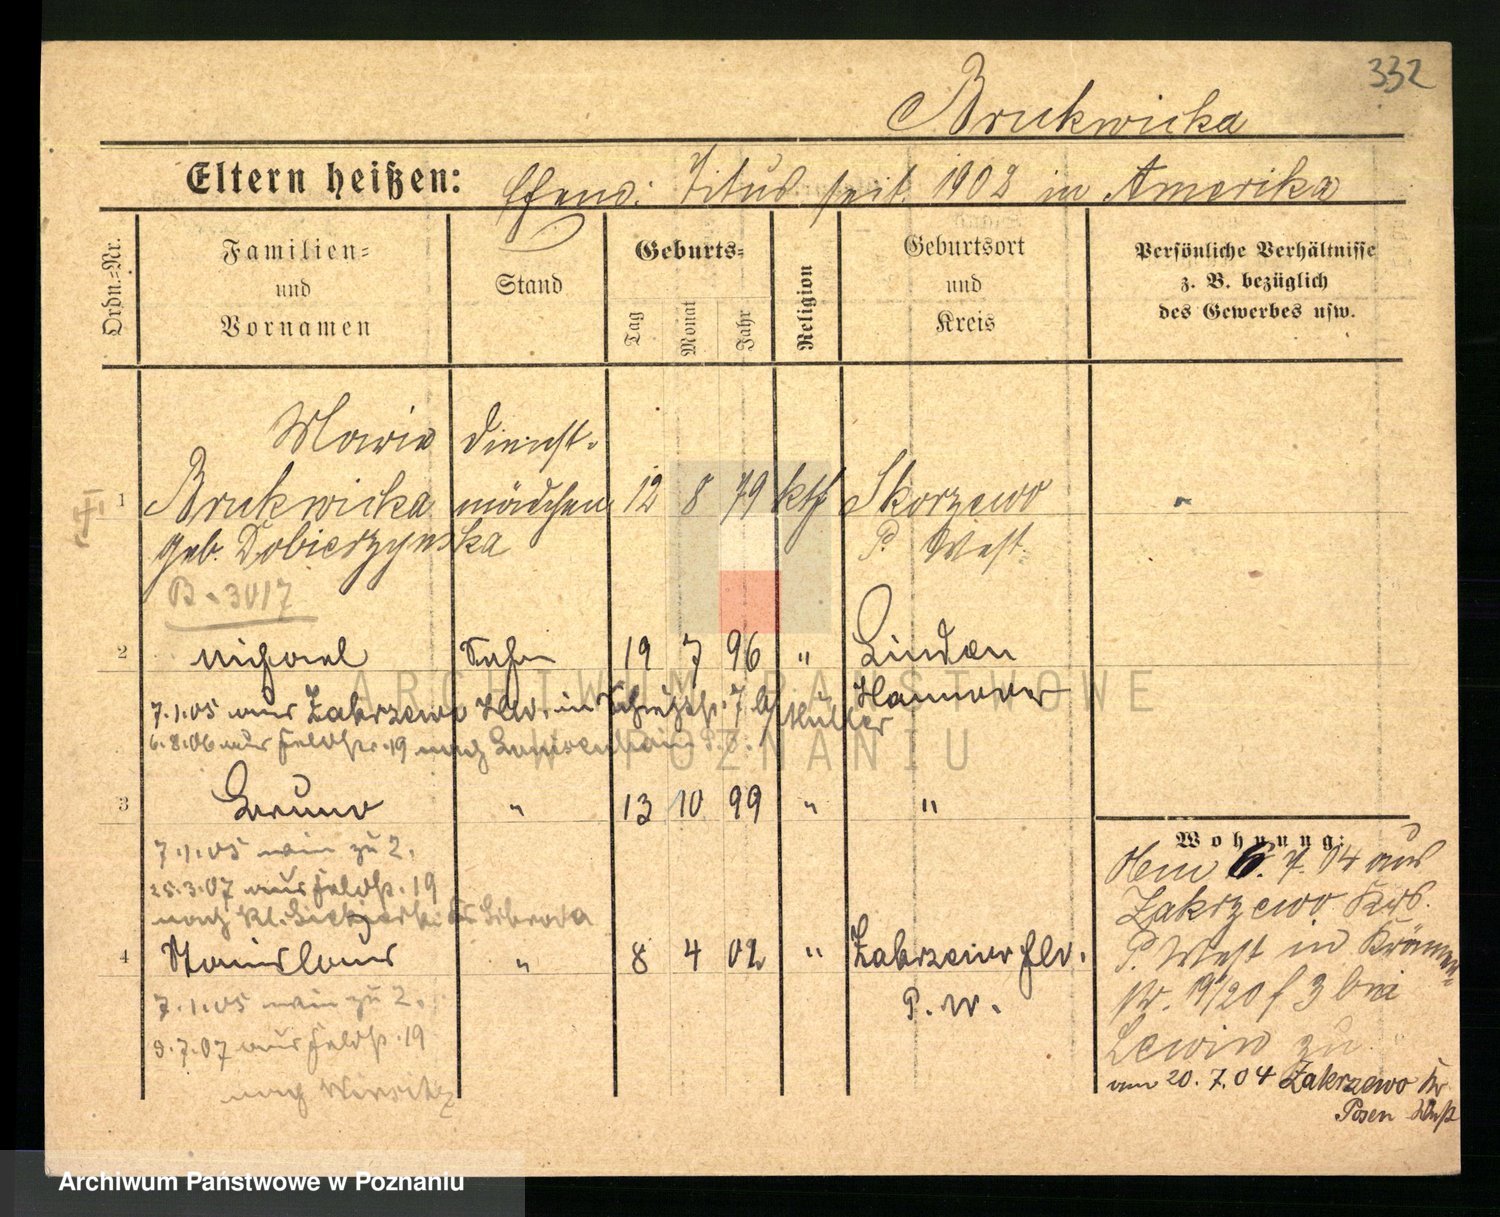 332
Brukwicka
Eltern heißen: Ehem: Titus seit 1902 in Amerika
Ordn.=Nr.
Familien= und Vornamen
Stand
Geburts=
Tag
Monat
Jahr
Religion
Geburtsort und Kreis
Persönliche Verhältnisse z. B. bezüglich des Gewerbes usw.
Marie Dienst-
1 Brukwicka mädchen 12 8 79 kth Skorzewo
geb. Dobierzynska P. West.
B. 3017
2 Michael Sohn 19 7 96 " Linden
Hannover
7.1.05 aus Zakrzewo in Schützstr. 7 b/ Müller
6.8.06 aus Feldstr. 19 nach
3 Bruno " 13 10 99 " "
7.1.05 wie zu 2.
25.3.07 aus Feldstr. 19
nach Kl.
4 Stanislaus " 8 4 02 " Zakrzewo
P. W.
7.1.05 wie zu 2.
9.7.07 aus Feldstr. 19
nach Wirsitz
Wohnung:
Am 6. 7. 04 aus
Zakrzewo Krs.
P. West in Krämer=
str. 19/20 f 3 bei
Lewin zu
am 20.7.04 Zakrzewo Kr
Posen West
ARCHIWUM PAŃSTWOWE
W POZNANIU
Archiwum Państwowe w Poznaniu